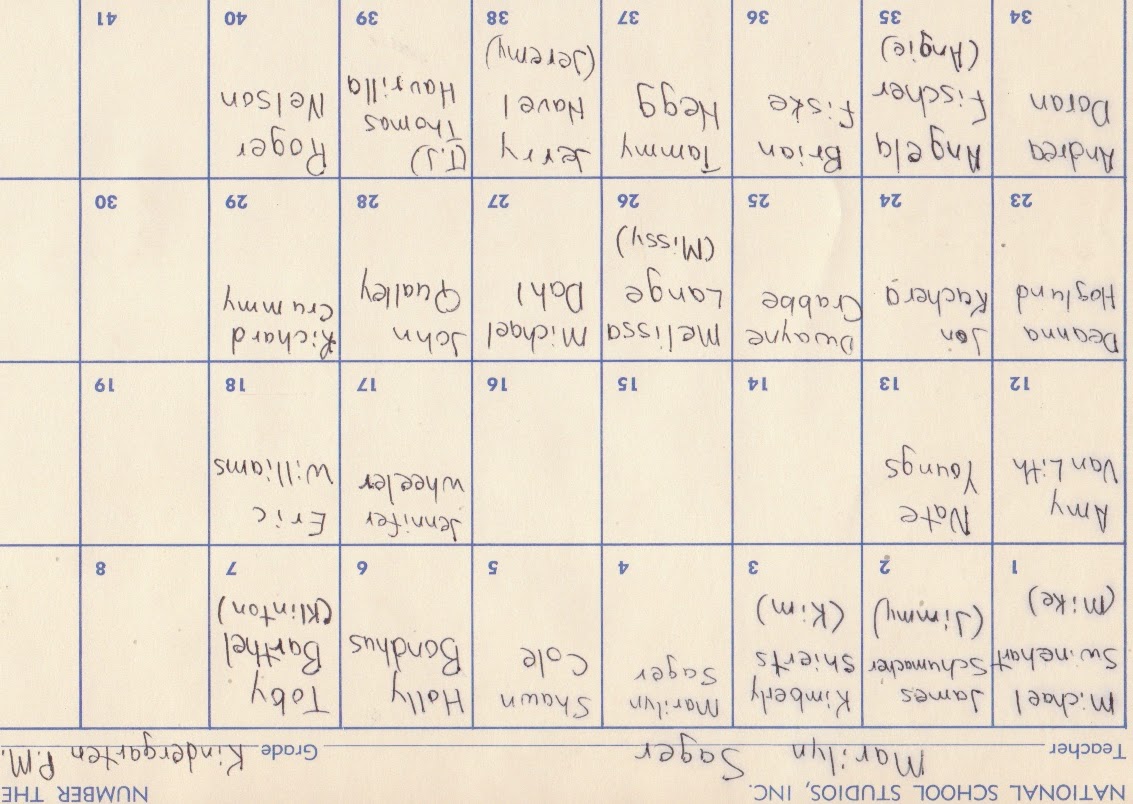 NATIONAL SCHOOL STUDIOS, INC.
NUMBER THE
Teacher Marilyn Sager Grade Kindergarten P.M.
Michael
Swinehart
(Mike)
1
James
Schumacher
(Jimmy)
2
Kimberly
Shierts
(Kim)
3
Marilyn
Sager
4
Shawn
Cole
5
Holly
Bondhus
6
Toby
Barthel
(Klinton)
7
8
Amy
Van Lith
12
Nate
Youngs
13
14
15
16
Jennifer
Wheeler
17
Eric
Williams
18
19
Deanna
Hoglund
23
Jon
Kachera
24
Dwayne
Crabbe
25
Melissa
Lange
(Missy)
26
Michael
Dahl
27
John
Qualley
28
Richard
Crummy
29
30
Andrea
Doran
34
Angela
Fischer
(Angie)
35
Brian
Fiske
36
Tammy
Hegg
37
Jerry
Havel
(Jeremy)
38
(T.J)
Thomas
Havrilla
39
Roger
Nelson
40
41